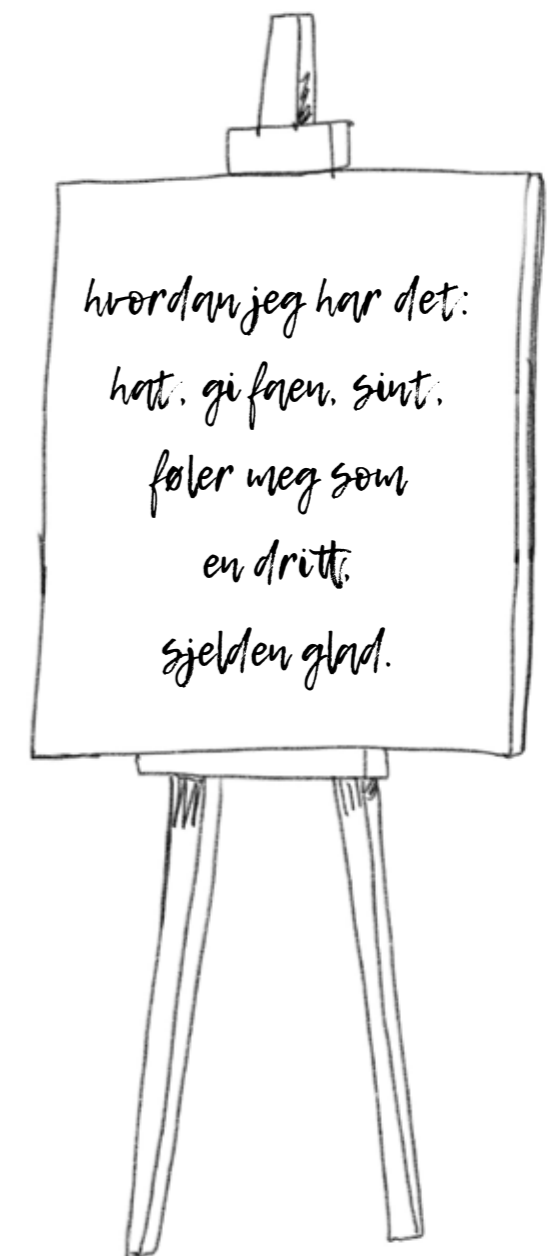 hvordan jeg har det:
hat, gi faen, sint,
føler meg som
en dritt,
sjelden glad.